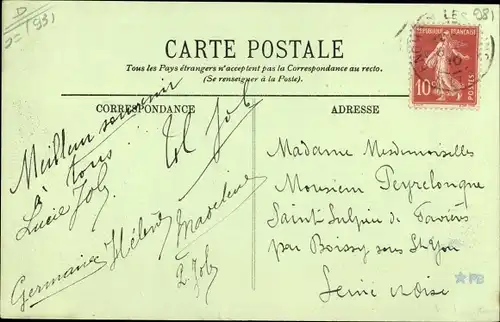 D
(93)
LES
981
CARTE POSTALE
Tous les Pays étrangers n'acceptent pas la Correspondance au recto.
(Se renseigner à la Poste).
REPUBLIQUE FRANÇAISE
10c
POSTES
CORRESPONDANCE
ADRESSE
Meilleur souvenir
à tous
Joly
Lucie Joly
Germaine Hélène Madeleine
Joly
Madame Mesdemoiselles
Monsieur Peyrelongue
Saint Sulpice de Favières
par Boissy sous St Yon
Seine et Oise
PB